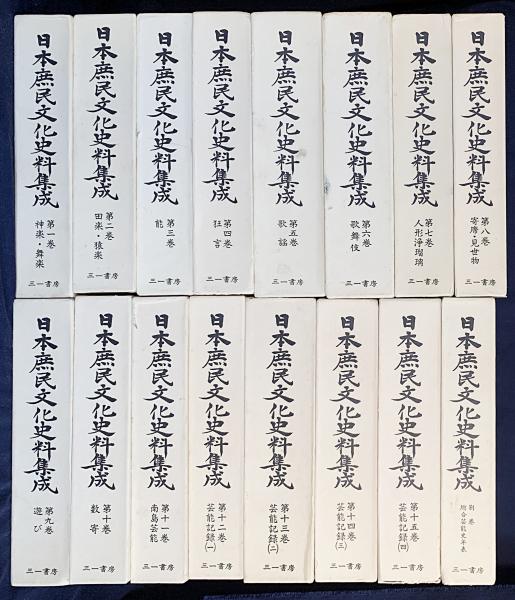 日本庶民文化史料集成
第一巻
神楽・舞楽
三一書房
日本庶民文化史料集成
第二巻
田楽・猿楽
三一書房
日本庶民文化史料集成
第三巻
能
三一書房
日本庶民文化史料集成
第四巻
狂言
三一書房
日本庶民文化史料集成
第五巻
歌謡
三一書房
日本庶民文化史料集成
第六巻
歌舞伎
三一書房
日本庶民文化史料集成
第七巻
人形浄瑠璃
三一書房
日本庶民文化史料集成
第八巻
寄席・見世物
三一書房
日本庶民文化史料集成
第九巻
遊び
三一書房
日本庶民文化史料集成
第十巻
数寄
三一書房
日本庶民文化史料集成
第十一巻
南島芸能
三一書房
日本庶民文化史料集成
第十二巻
芸能記録(一)
三一書房
日本庶民文化史料集成
第十三巻
芸能記録(二)
三一書房
日本庶民文化史料集成
第十四巻
芸能記録(三)
三一書房
日本庶民文化史料集成
第十五巻
芸能記録(四)
三一書房
日本庶民文化史料集成
別巻
総合芸能史年表
三一書房